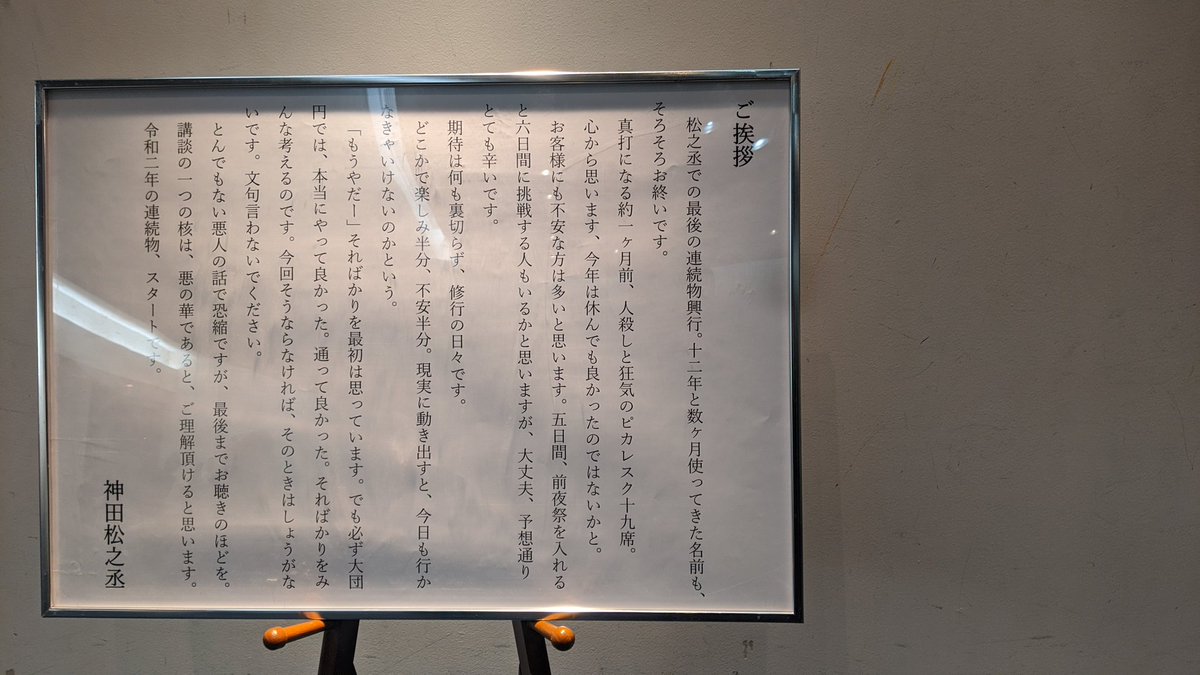 ご挨拶
松之丞での最後の連続物興行。十二年と数ヶ月使ってきた名前も、
そろそろお終いです。
真打になる約一ヶ月前、人殺しと狂気のピカレスク十九席。
心から思います、今年は休んでも良かったのではないかと。
お客様にも不安な方は多いと思います。五日間、前夜祭を入れる
と六日間に挑戦する人もいるかと思いますが、大丈夫、予想通り
とても辛いです。
期待は何も裏切らず、修行の日々です。
どこかで楽しみ半分、不安半分。現実に動き出すと、今日も行か
なきゃいけないのかという。
「もうやだー」そればかりを最初は思っています。でも必ず大団
円では、本当にやって良かった。通って良かった。そればかりをみ
んな考えるのです。今回そうならなければ、そのときはしょうがな
いです。文句言わないでください。
とんでもない悪人の話で恐縮ですが、最後までお聴きのほどを。
講談の一つの核は、悪の華であると、ご理解頂けると思います。
令和二年の連続物、スタートです。
神田松之丞